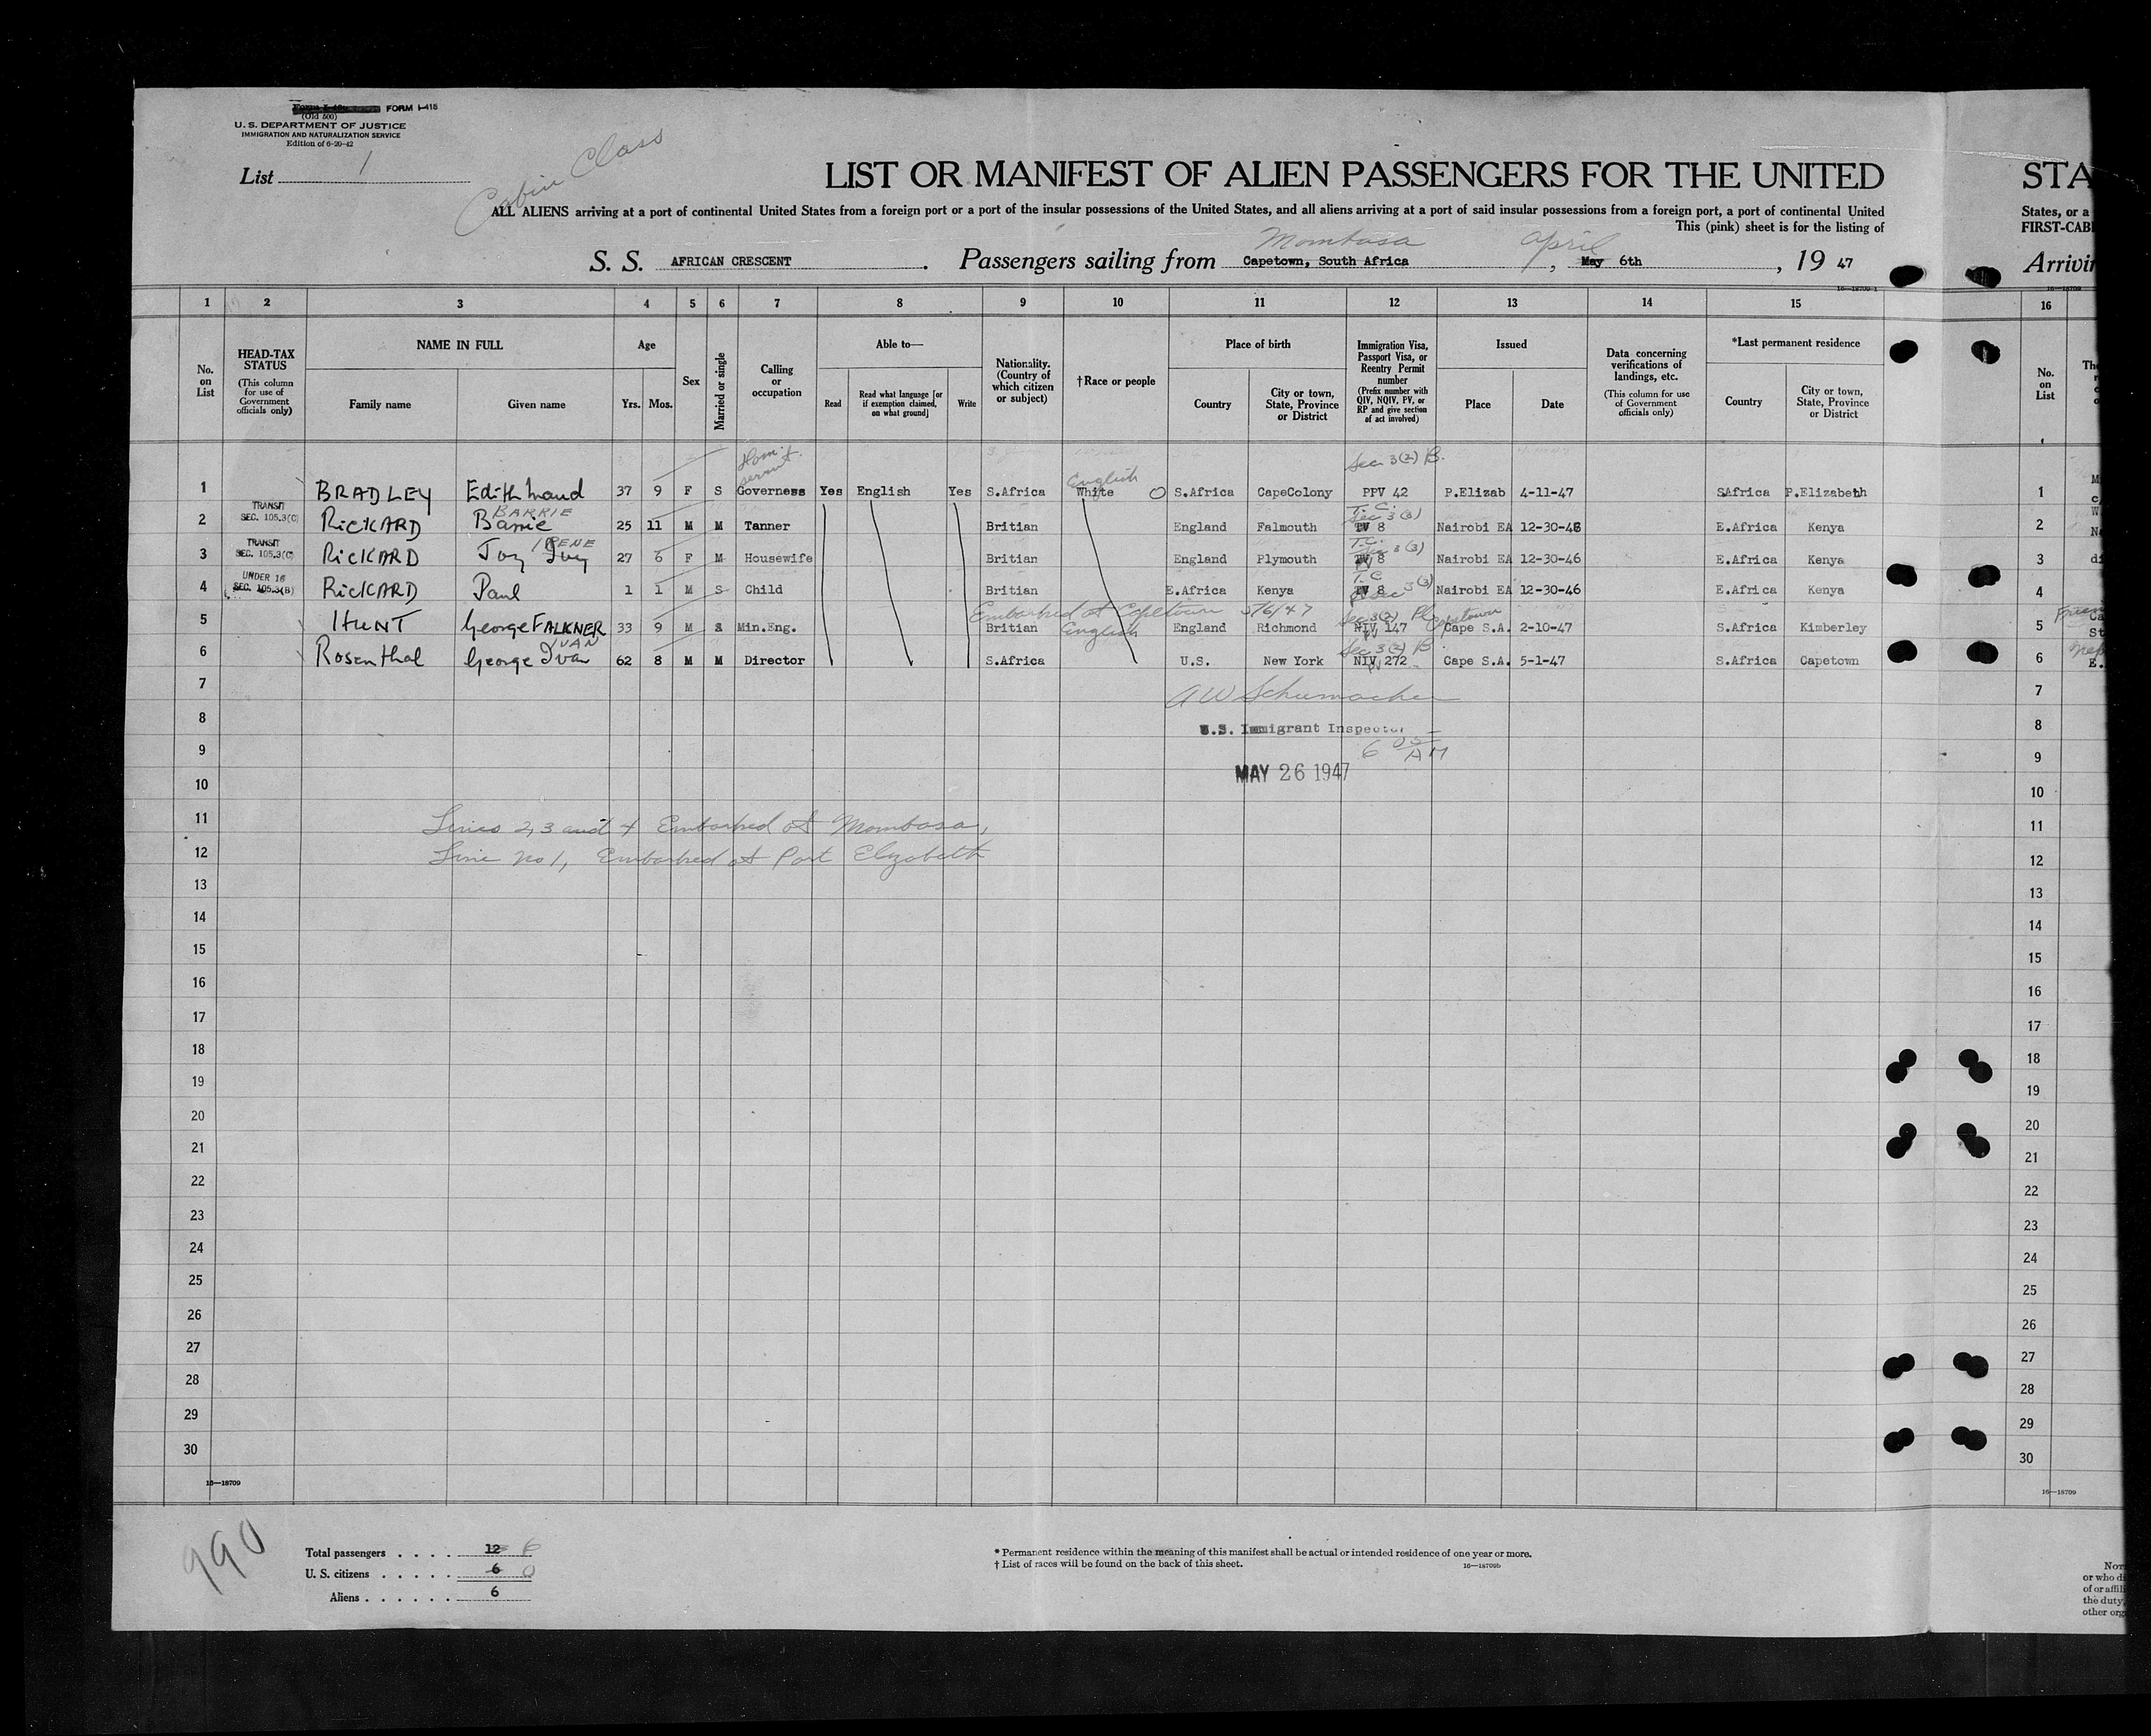 FORM I-415
(Old 500)
U. S. DEPARTMENT OF JUSTICE
IMMIGRATION AND NATURALIZATION SERVICE
Edition of 6-20-42
List 1
Cabin Class
LIST OR MANIFEST OF ALIEN PASSENGERS FOR THE UNITED
STA
ALL ALIENS arriving at a port of continental United States from a foreign port or a port of the insular possessions of the United States, and all aliens arriving at a port of said insular possessions from a foreign port, a port of continental United
States, or a
This (pink) sheet is for the listing of
FIRST-CAB
Mombasa April
S. S. AFRICAN CRESCENT . Passengers sailing from Capetown, South Africa , May 6th , 19 47
Arrivin
1 2 3 4 5 6 7 8 9 10 11 12 13 14 15 16
No. on List
HEAD-TAX STATUS
(This column for use of Government officials only)
NAME IN FULL
Family name Given name
Age
Yrs. Mos.
Sex
Married or single
Calling or occupation
Able to—
Read
Read what language [or if exemption claimed, on what ground]
Write
Nationality. (Country of which citizen or subject)
†Race or people
Place of birth
Country
City or town, State, Province or District
Immigration Visa, Passport Visa, or Reentry Permit number
(Prefix number with QIV, NQIV, PV, or RP and give section of act involved)
Issued
Place Date
Data concerning verifications of landings, etc.
(This column for use of Government officials only)
*Last permanent residence
Country
City or town, State, Province or District
No. on List
Sec 3(2) B.
servant
English
1 BRADLEY Edith Maud 37 9 F S Governess Yes English Yes S.Africa White S.Africa CapeColony PPV 42 P.Elizab 4-11-47 SAfrica P.Elizabeth 1
TRANSIT SEC. 105.3(C)
BARRIE
T.C. Sec 3(3)
2 RicKARD Barrie 25 11 M M Tanner Britian England Falmouth 8 Nairobi EA 12-30-46 E.Africa Kenya 2
TRANSIT SEC. 105.3(C)
IRENE
T.C. Sec 3(3)
3 RicKARD Joy Ivy 27 6 F M Housewife Britian England Plymouth 8 Nairobi EA 12-30-46 E.Africa Kenya 3
UNDER 16 SEC. 105.3(B)
T.C Sec 3(3)
4 RicKARD Paul 1 1 M S Child Britian E.Africa Kenya 8 Nairobi EA 12-30-46 E.Africa Kenya 4
Embarked at Capetown 5/6/47 Sec 3(2) Capetown
English
5 HUNT George FALKNER 33 9 M S Min.Eng. Britian England Richmond NIV 147 Cape S.A. 2-10-47 S.Africa Kimberley 5
IVAN
Sec 3(2) B.
6 Rosenthal George Ivan 62 8 M M Director S.Africa U.S. New York NIV 272 Cape S.A. 5-1-47 S.Africa Capetown 6
7 A W Schumacher 7
8 U.S. Immigrant Inspector 8
9 6 05 AM 9
10 MAY 26 1947 10
11 Lines 2, 3 and 4 Embarked at Mombasa, 11
12 Line No 1, Embarked at Port Elizabeth 12
13 13
14 14
15 15
16 16
17 17
18 18
19 19
20 20
21 21
22 22
23 23
24 24
25 25
26 26
27 27
28 28
29 29
30 30
16—18709
16—18709
990
Total passengers . . . . 12 6
U. S. citizens . . . . . 6 0
Aliens . . . . . . 6
* Permanent residence within the meaning of this manifest shall be actual or intended residence of one year or more.
† List of races will be found on the back of this sheet.
16—18709b
or who di
of or affili
the duty,
other org